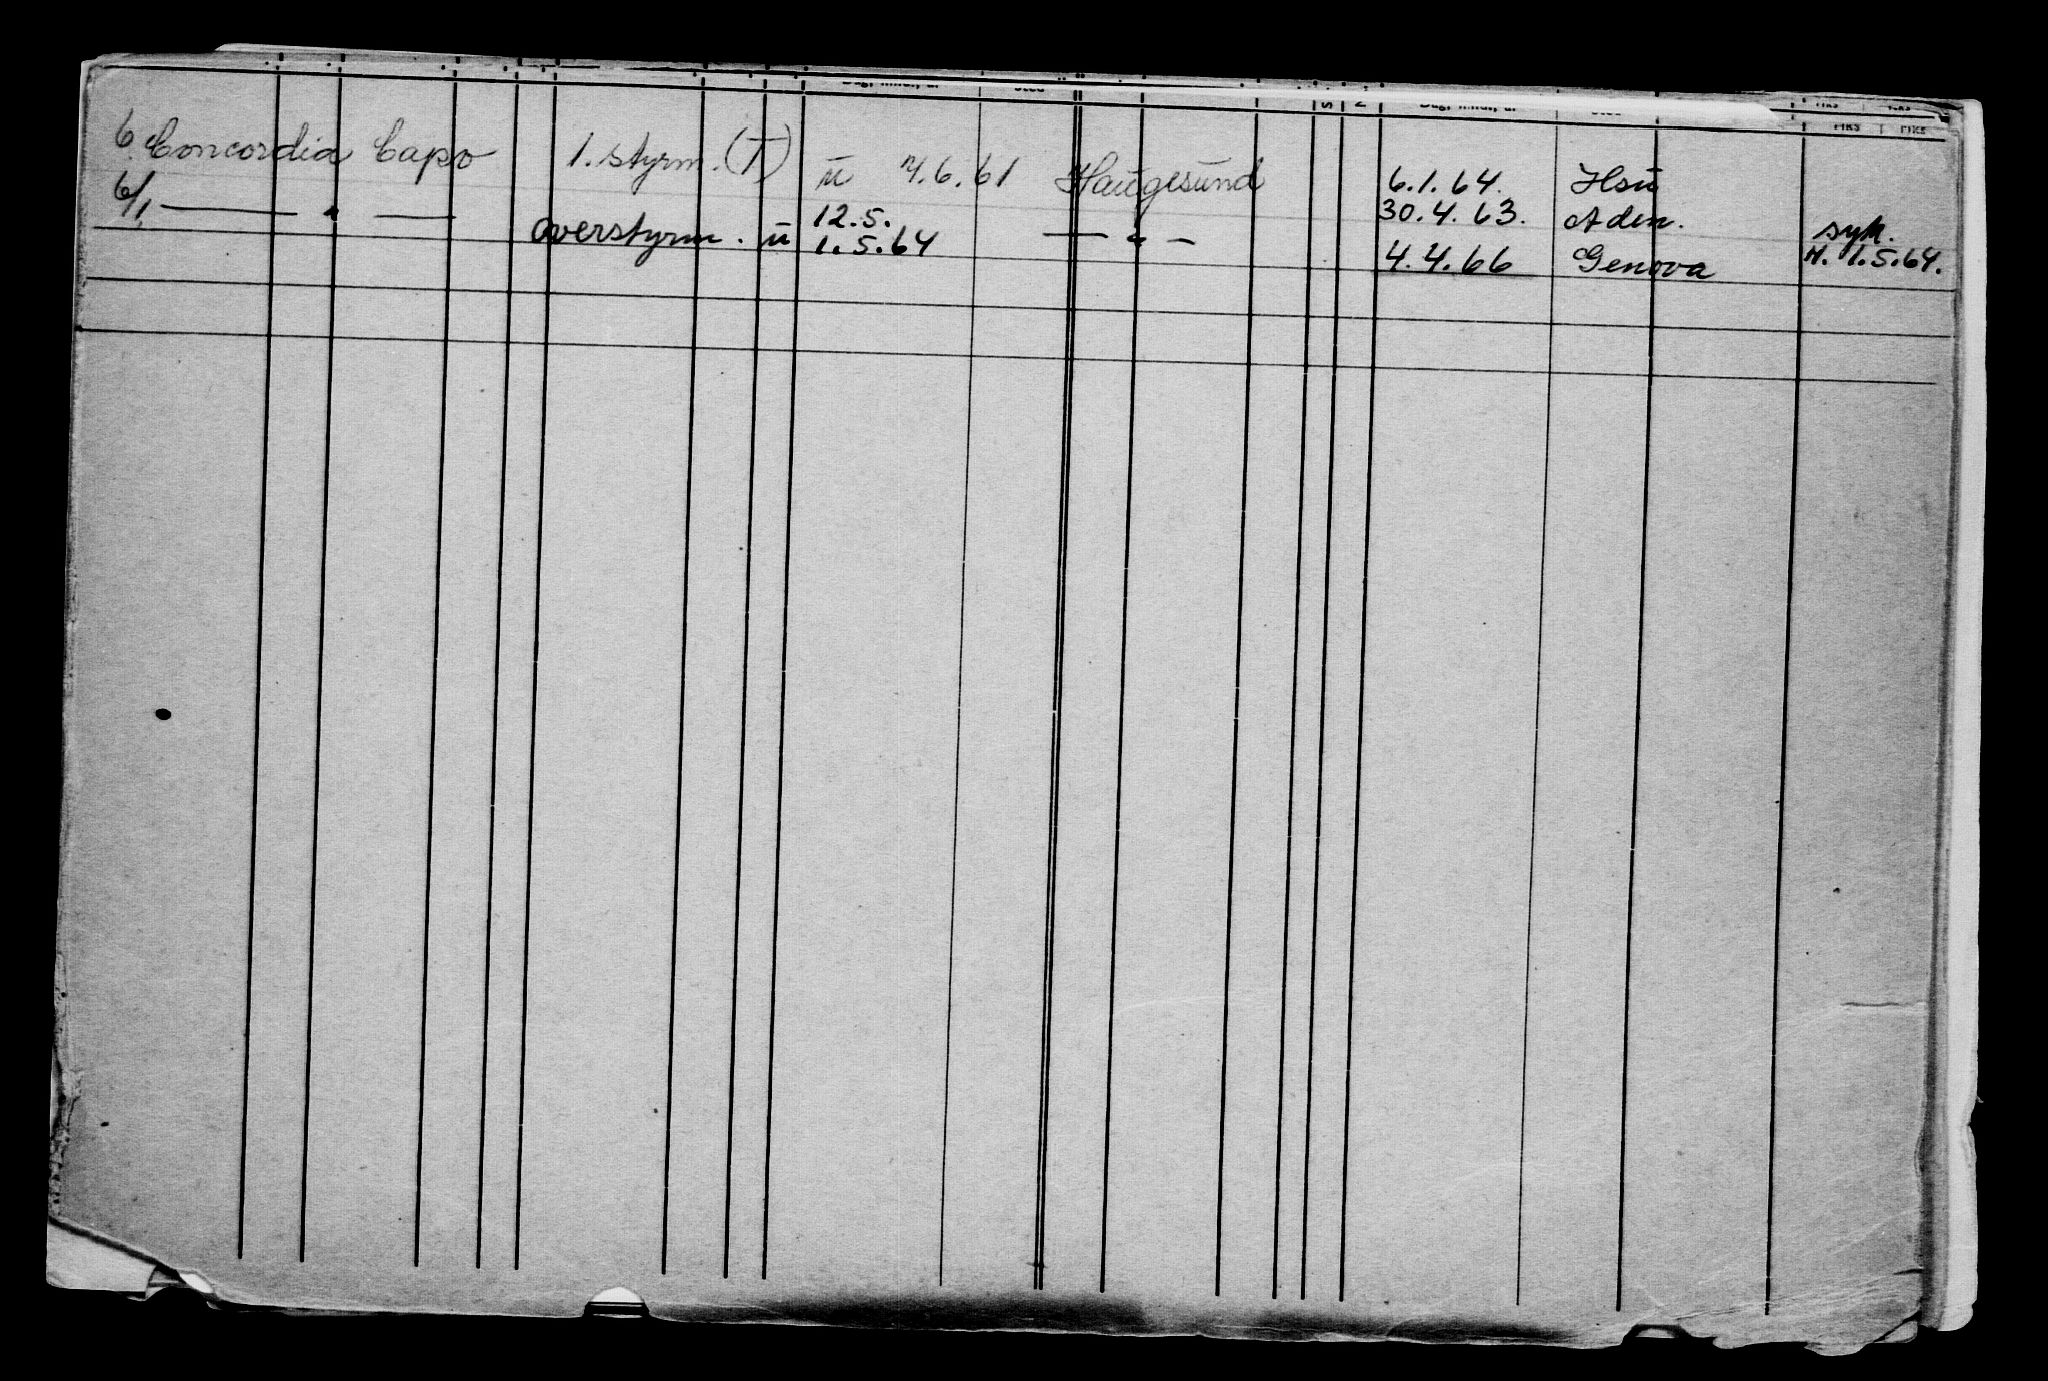 6 Concordia Capo 1. styrm. (T) ū 7.6.61 Haugesund 6.1.64. Hsū
6/1 — " — 12.5. 30.4.63. Aden. syk.
overstyrm. ū 1.5.64 — " — 4.4.66 Genova M. 1.5.64.